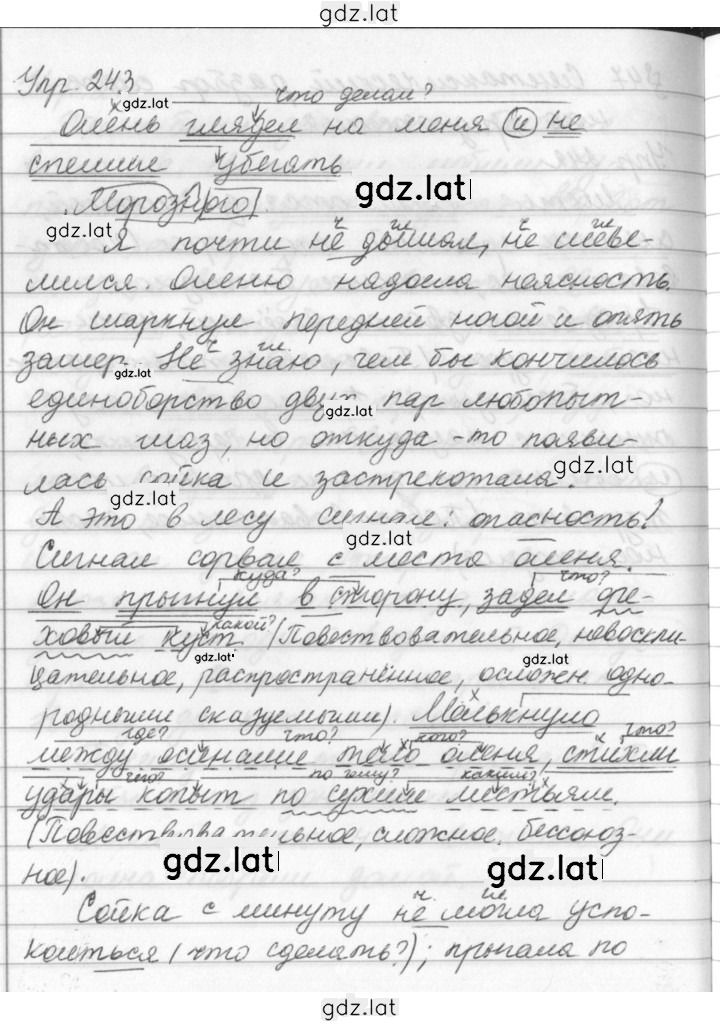 gdz.lat
Упр. 243
gdz.lat
что делал?
Олень глядел на меня и не
спешил убегать
gdz.lat
Мороз/н/ого.
gdz.lat
ч. гл.
ч. гл.
Я почти не дышал, не шеве-
лился. Оленю надоела неясность.
Он шаркнул передней ногой и опять
ч. гл.
замер. Не знаю, чем бы кончилось
gdz.lat
единоборство двух пар любопыт-
gdz.lat
ных глаз, но откуда-то появи-
gdz.lat
лась сойка и застрекотала.
gdz.lat
А это в лесу сигнал: опасность!
gdz.lat
Сигнал сорвал с места оленя.
куда? что?
Он прыгнул в сторону, задел оре-
какой?
ховый куст (Повествовательное, невоскли
gdz.lat
gdz.lat
цательное, распространённое, осложнен. одно-
родными сказуемыми). Мелькнуло
где? что? кого? что?
между осинами тело оленя, стихли
чего? по чему? каким?
удары копыт по сухим листьям.
(Повествовательное, сложное, бессоюз-
gdz.lat
gdz.lat
ное).
ч. гл.
Сойка с минуту не могла успо-
коиться (что сделать?); прыгала по
gdz.lat